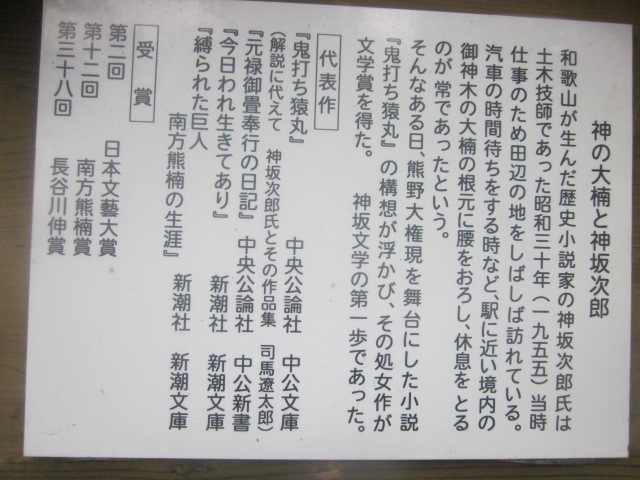 神の大楠と神坂次郎
和歌山が生んだ歴史小説家の神坂次郎氏は
土木技師であった昭和三十年(一九五五)当時
仕事のため田辺の地をしばしば訪れている。
汽車の時間待ちをする時など、駅に近い境内の
御神木の大楠の根元に腰をおろし、休息をとる
のが常であったという。
そんなある日、熊野大権現を舞台にした小説
『鬼打ち猿丸』の構想が浮かび、その処女作が
文学賞を得た。 神坂文学の第一歩であった。
代表作
『鬼打ち猿丸』 中央公論社 中公文庫
(解説に代えて 神坂次郎氏とその作品集 司馬遼太郎)
『元禄御畳奉行の日記』 中央公論社 中公新書
『今日われ生きてあり』 新潮社 新潮文庫
『縛られた巨人
南方熊楠の生涯』 新潮社 新潮文庫
受賞
第二回 日本文藝大賞
第十二回 南方熊楠賞
第三十八回 長谷川伸賞